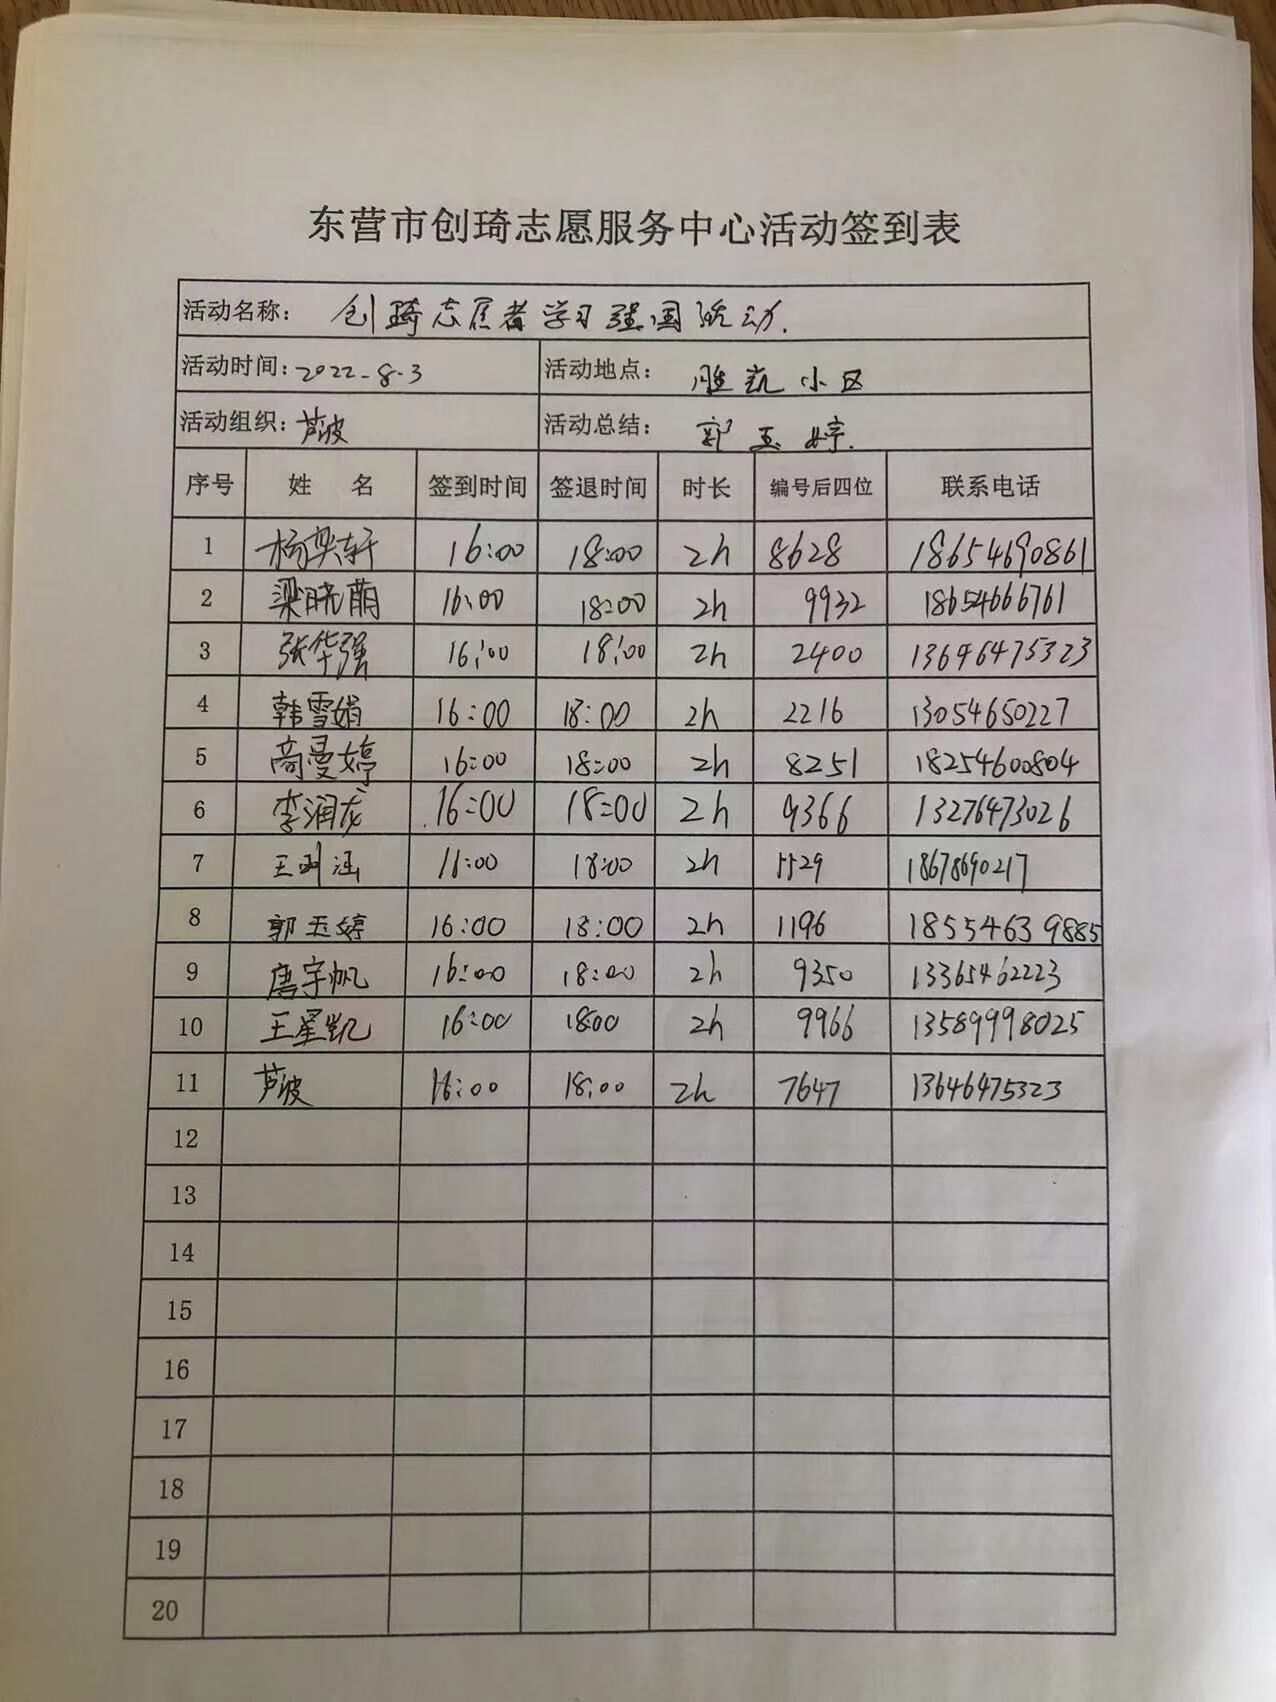 东营市创琦志愿服务中心活动签到表
活动名称： 创琦志愿者学习强国活动.
活动时间：2022-8.3 活动地点： 胜凯小区
活动组织：芦波 活动总结： 郭玉婷.
序号 姓 名 签到时间 签退时间 时长 编号后四位 联系电话
1 杨奕轩 16:00 18:00 2h 8628 18654690861
2 梁晓萌 16:00 18:00 2h 9932 18654666761
3 张华强 16:00 18:00 2h 2400 13646475323
4 韩雪娟 16:00 18:00 2h 2216 13054650227
5 高曼婷 16:00 18:00 2h 8251 18254600804
6 李润龙 16:00 18:00 2h 9366 13276473026
7 王明涵 16:00 18:00 2h 1529 18678690217
8 郭玉婷 16:00 18:00 2h 1196 18554639885
9 唐宇帆 16:00 18:00 2h 9350 13365462223
10 王星凯 16:00 18:00 2h 9966 13589998025
11 芦波 16:00 18:00 2h 7647 13646475323
12
13
14
15
16
17
18
19
20